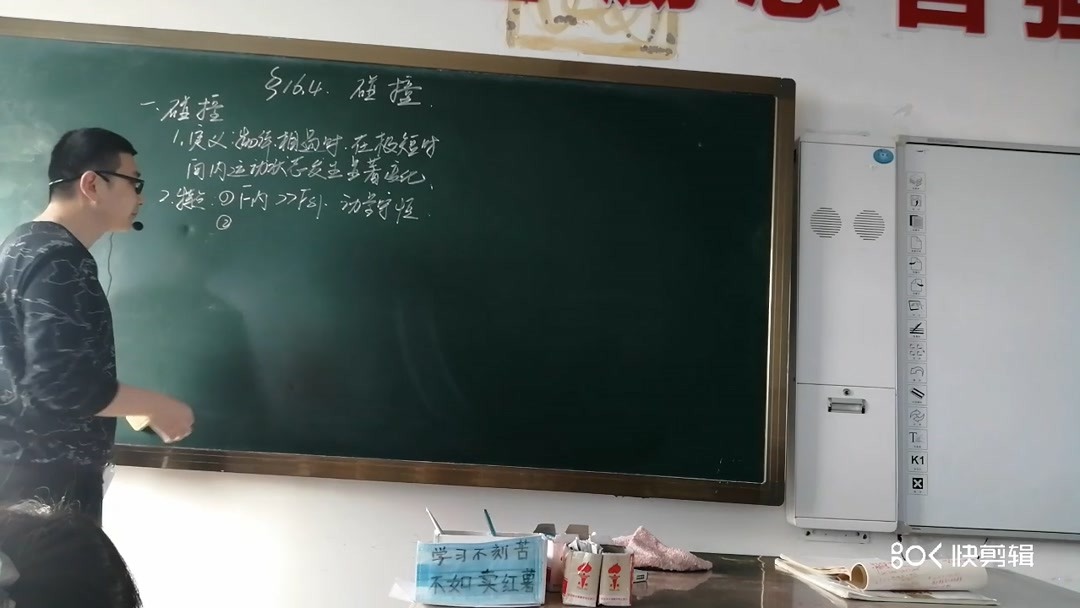 §16.4. 碰撞.
一、碰撞
1、定义:物体相遇时.在极短时
间内运动状态发生显著变化、
2、特点.①F内>>F外.动量守恒.
②
K1
学习不刻苦
不如卖红薯
快剪辑